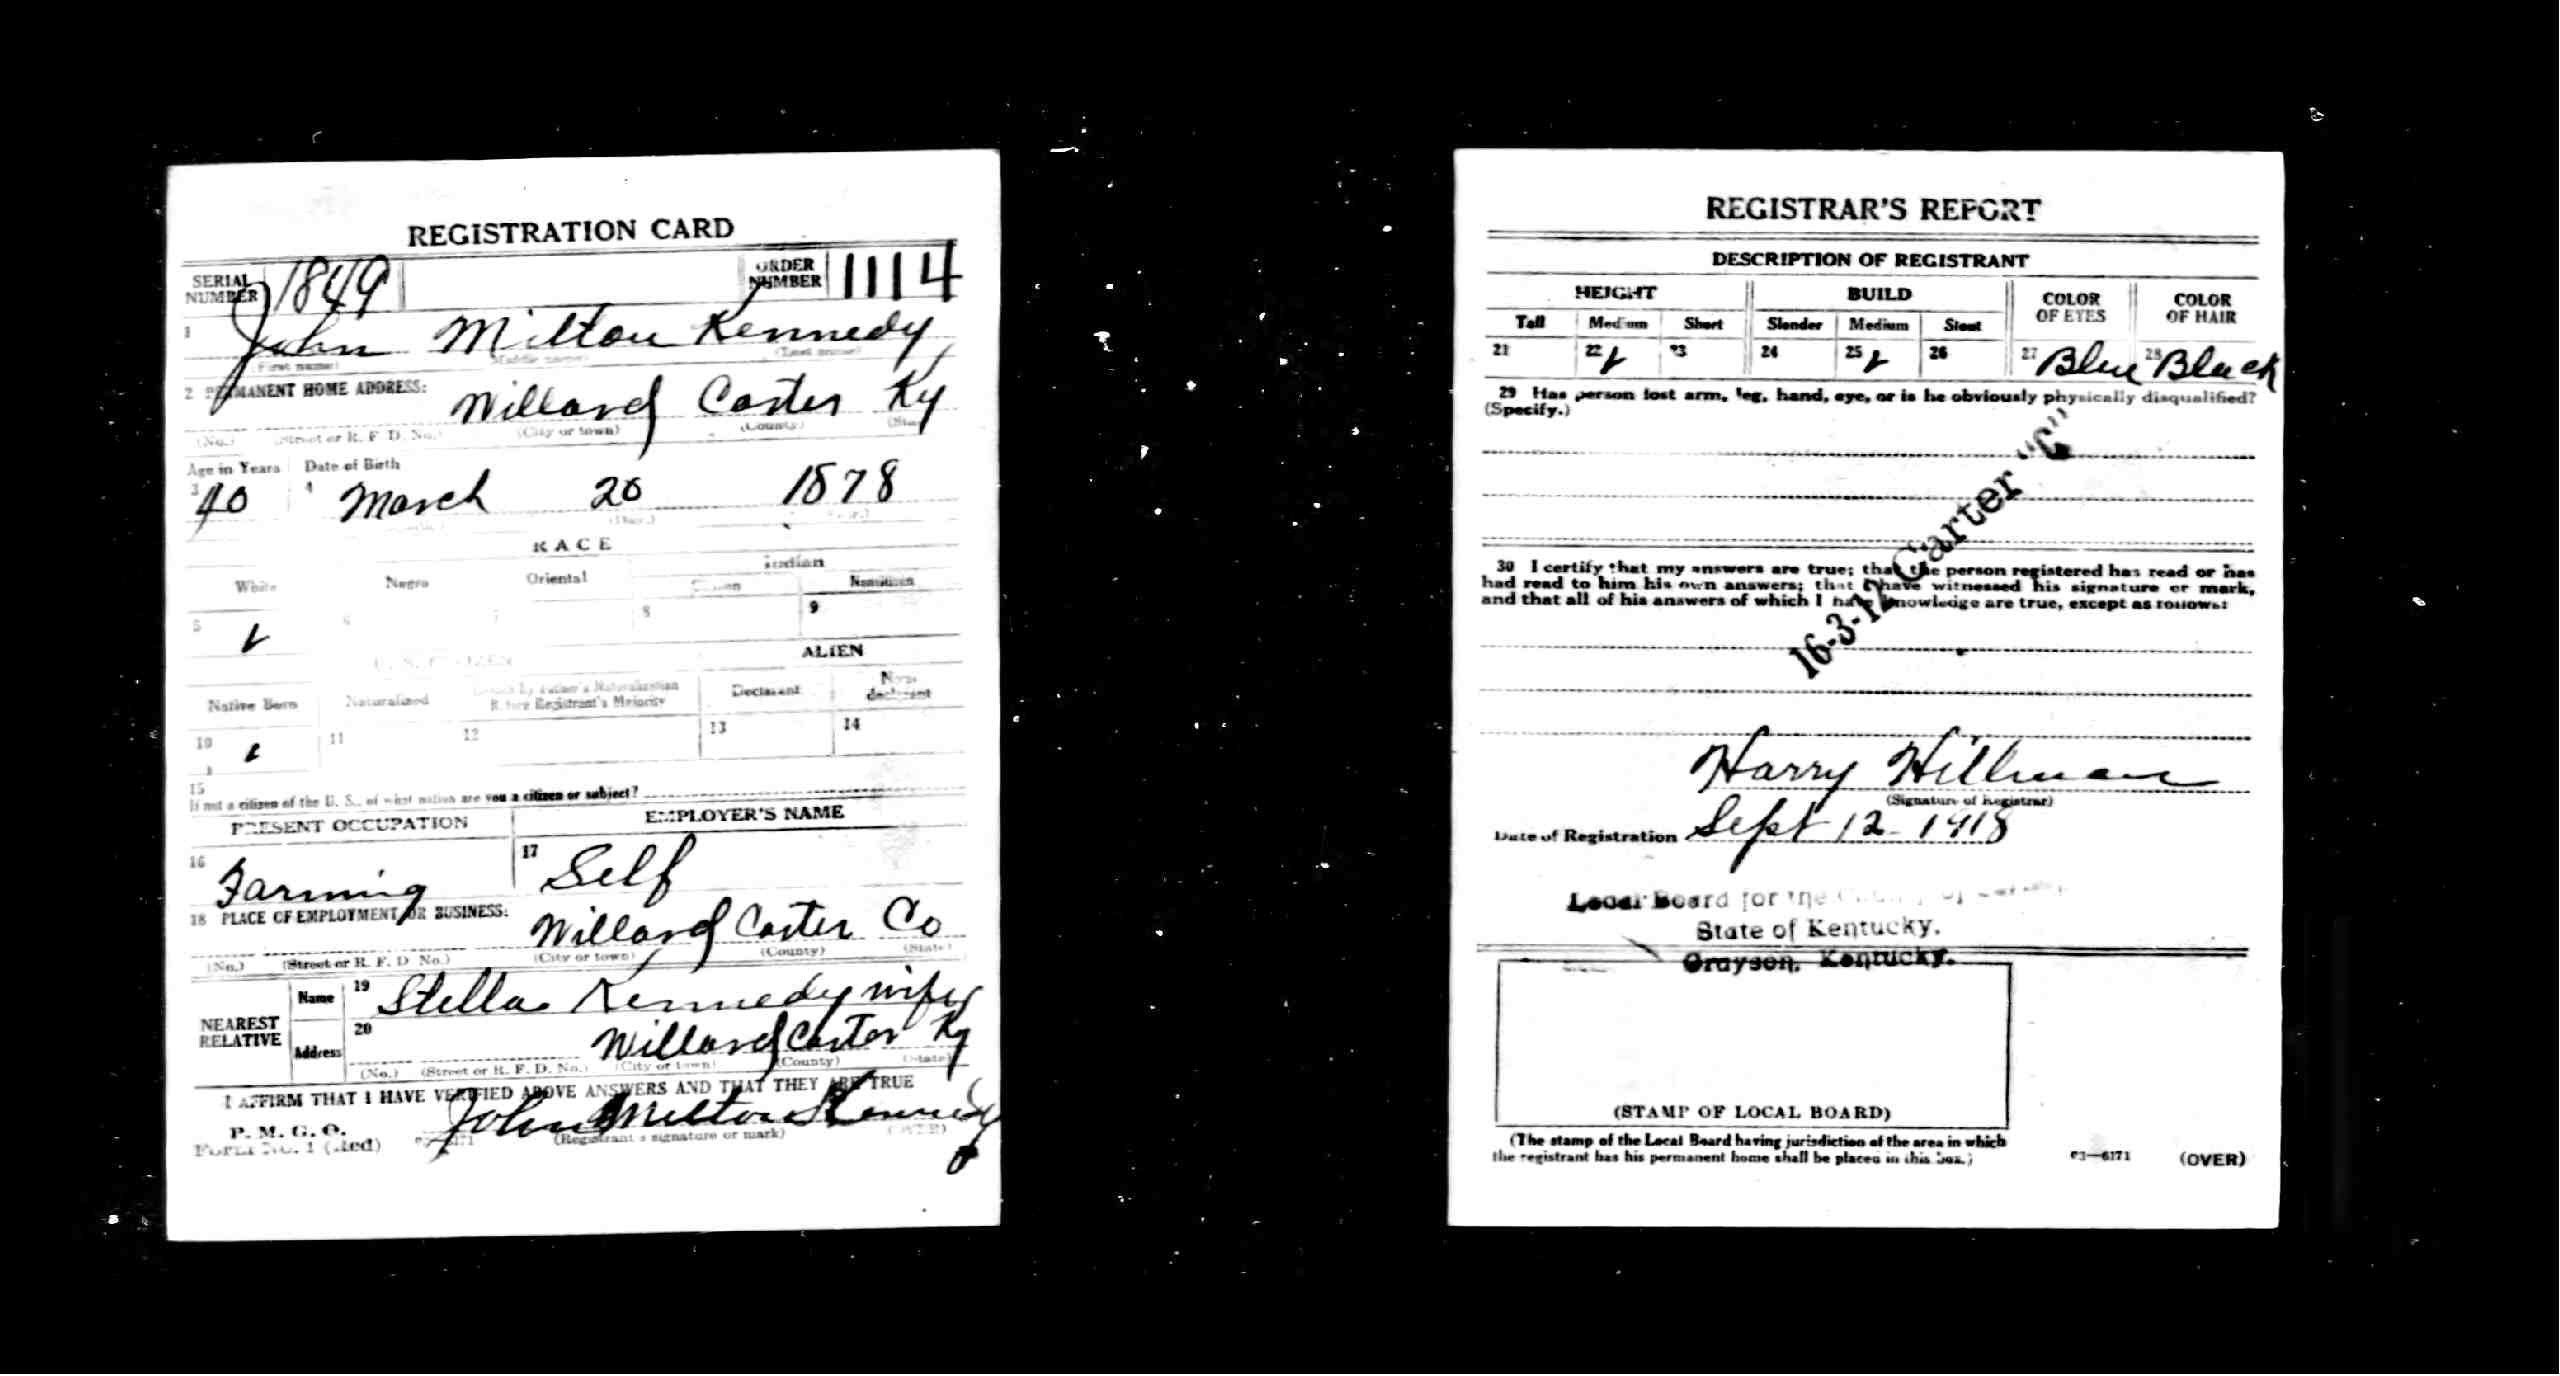 REGISTRATION CARD
SERIAL NUMBER 1849 ORDER NUMBER 1114
1 John Milton Kennedy
(First name) (Middle name) (Last name)
2 PERMANENT HOME ADDRESS:
Willard Carter Ky
(No.) (Street or R. F. D. No.) (City or town) (County) (State)
Age in Years Date of Birth
3 40 4 March 20 1878
(Day.)
RACE
White Negro Oriental Indian
Citizen Noncitizen
5 ✓ 6 7 8 9
U. S. CITIZEN ALIEN
Native Born Naturalized Citizen by Father's Naturalization Before Registrant's Majority Declarant Non-declarant
10 ✓ 11 12 13 14
15
If not a citizen of the U. S., of what nation are you a citizen or subject?
PRESENT OCCUPATION EMPLOYER'S NAME
16 Farming 17 Self
18 PLACE OF EMPLOYMENT OR BUSINESS:
Willard Carter Co
(No.) (Street or R. F. D. No.) (City or town) (County) (State)
NEAREST RELATIVE
Name 19 Stella Kennedy wife
Address 20 Willard Carter Ky
(No.) (Street or R. F. D. No.) (City or town) (County) (State)
I AFFIRM THAT I HAVE VERIFIED ABOVE ANSWERS AND THAT THEY ARE TRUE
P. M. G. O.
Form No. 1 (Red) John Milton Kennedy
(Registrant's signature or mark) (OVER)
REGISTRAR'S REPORT
DESCRIPTION OF REGISTRANT
HEIGHT BUILD COLOR OF EYES COLOR OF HAIR
Tall Medium Short Slender Medium Stout
21 22 ✓ 23 24 25 ✓ 26 27 Blue 28 Black
29 Has person lost arm, leg, hand, eye, or is he obviously physically disqualified?
(Specify.)
16-3-12 Carter "C"
30 I certify that my answers are true; that the person registered has read or has
had read to him his own answers; that I have witnessed his signature or mark,
and that all of his answers of which I have knowledge are true, except as follows:
Harry Hillman
(Signature of Registrar)
Date of Registration Sept 12 - 1918
Local Board for the County of Carter,
State of Kentucky.
Grayson, Kentucky.
(STAMP OF LOCAL BOARD)
(The stamp of the Local Board having jurisdiction of the area in which
the registrant has his permanent home shall be placed in this box.)
03—6171 (OVER)